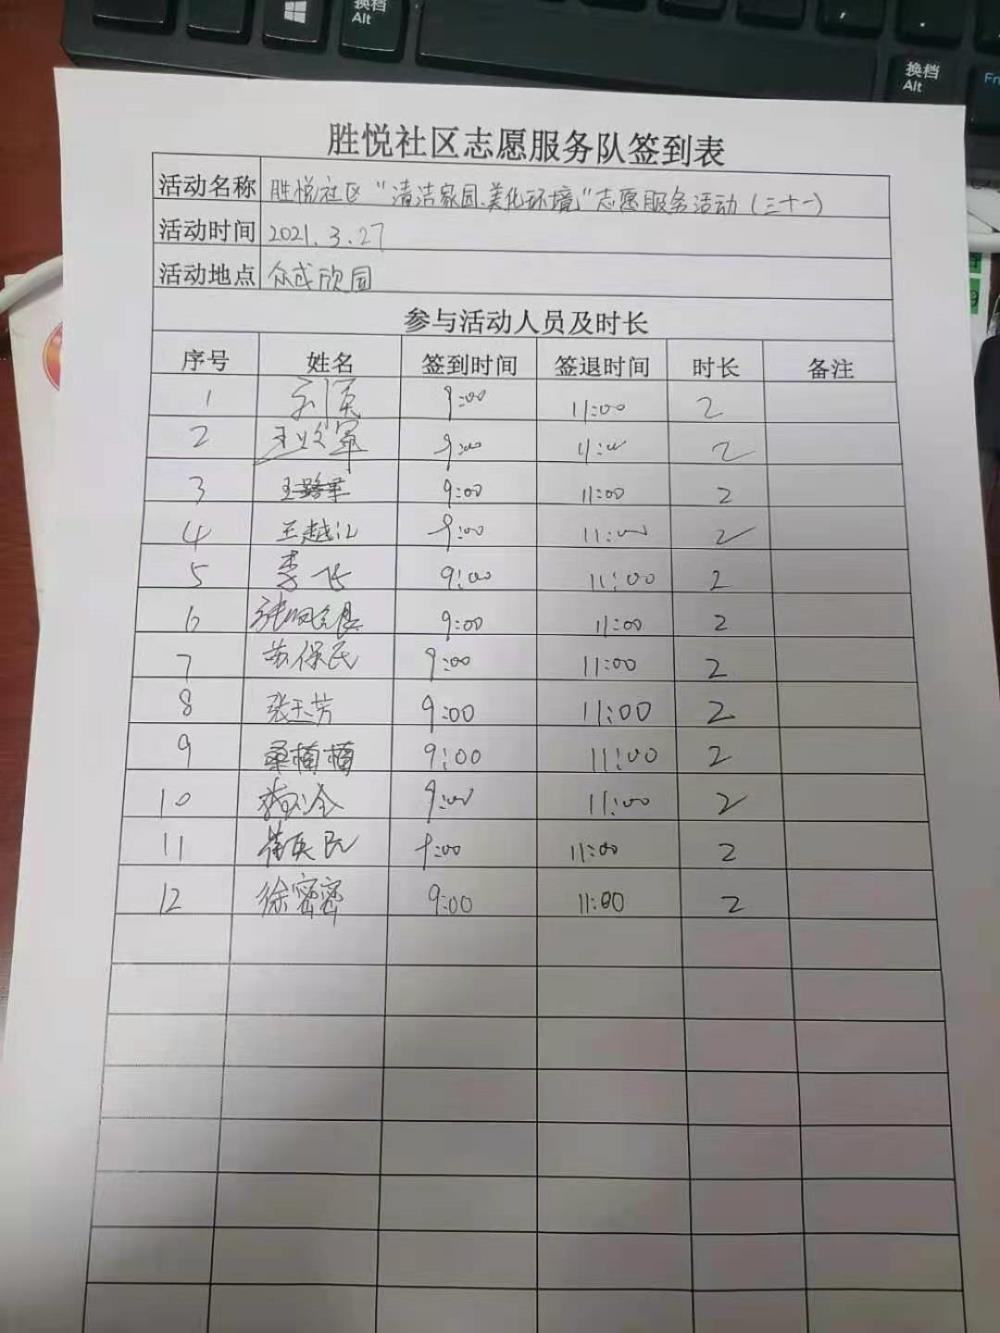 换档
Alt
换档
Alt
Fn
胜悦社区志愿服务队签到表
活动名称 胜悦社区“清洁家园、美化环境”志愿服务活动(三十一)
活动时间 2021.3.27
活动地点 众成欣园
参与活动人员及时长
序号 姓名 签到时间 签退时间 时长 备注
1 刘英 9:00 11:00 2
2 9:00 11:00 2
3 9:00 11:00 2
4 王越江 9:00 11:00 2
5 李飞 9:00 11:00 2
6 9:00 11:00 2
7 苏保民 9:00 11:00 2
8 张玉芳 9:00 11:00 2
9 桑楠楠 9:00 11:00 2
10 9:00 11:00 2
11 9:00 11:00 2
12 徐密密 9:00 11:00 2